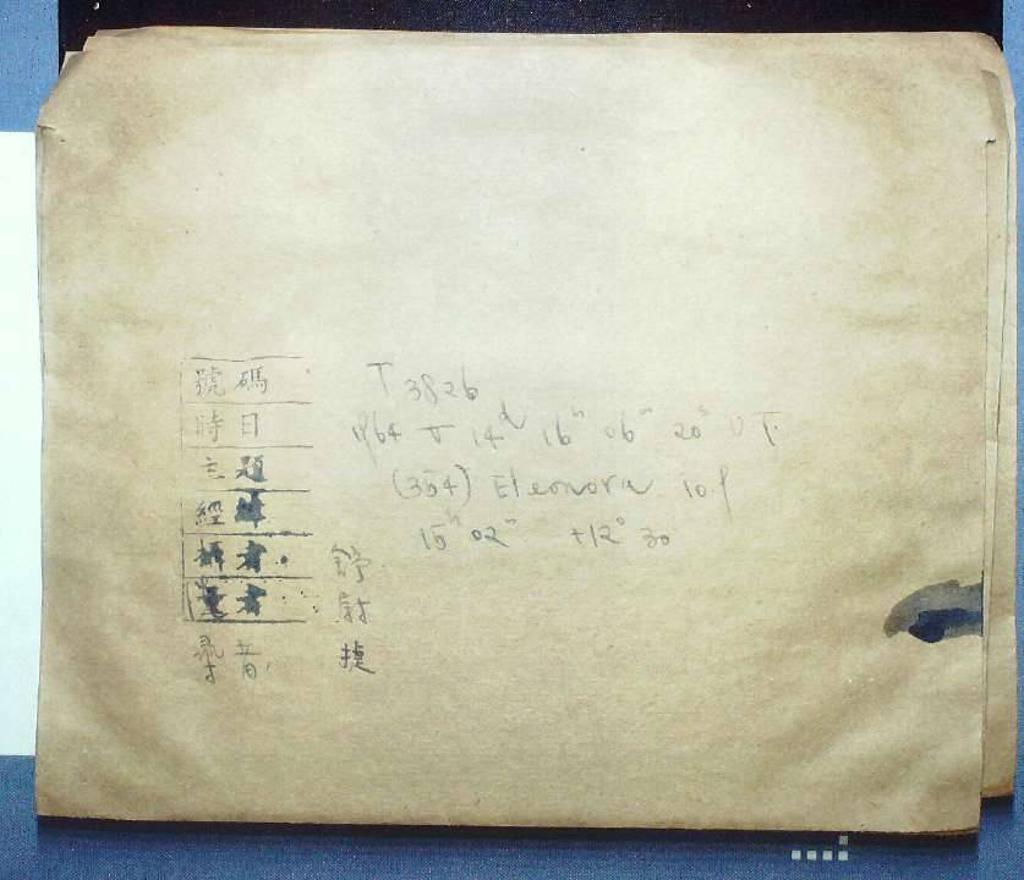 號碼 T 3826
時日 1964 V 14ᵈ 16ʰ 06ᵐ 20ˢ UT
主題 (354) Eleonora 10.1
經緯 15ʰ 02ᵐ +12° 30
攝者 舒
量者 尉
尋者 捷